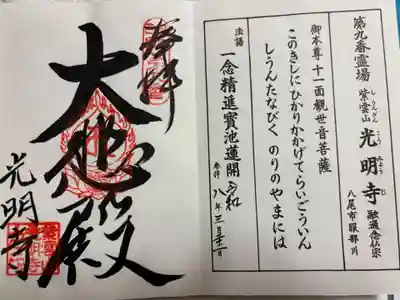 第九番霊場
紫雲山 光明寺 融通念仏宗
しうんざん こう みょう じ
八尾市服部川
御本尊 十一面観世音菩薩
このきしにひかりかかげてらいごういん
しうんたなびく のりのやまには
法語 一念精進寳池蓮開
参拝 令和八年三月二十二日
奉拝
大悲殿
光明寺